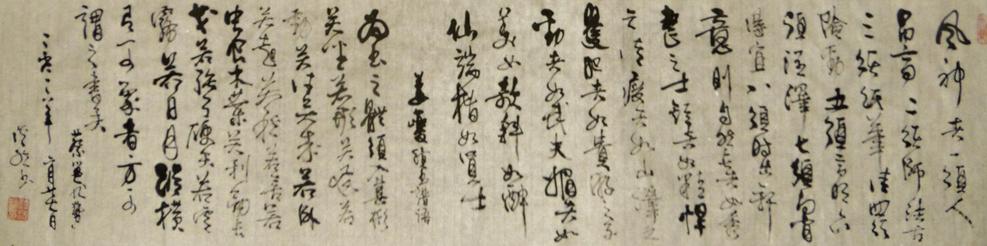 風神者一須人
品高二須師法古
三須紙筆佳四須
險勁五須高明六
須潤澤七須向背
得宜八須時出新
意則自然長者如秀
整之士短者如精悍
之徒瘦者如山澤之癯
肥者如貴游之子
勁者如武夫媚者如
美女欹斜如醉
仙端楷如賢士
姜夔續書譜語
為書之體須入其形
若坐若行若飛若
動若往若來若臥
若起若愁若喜若
蟲食木葉若利劍長
戈若強弓硬矢若雲
霧若日月縱橫
有可象者方可
謂之書矣
蔡邕